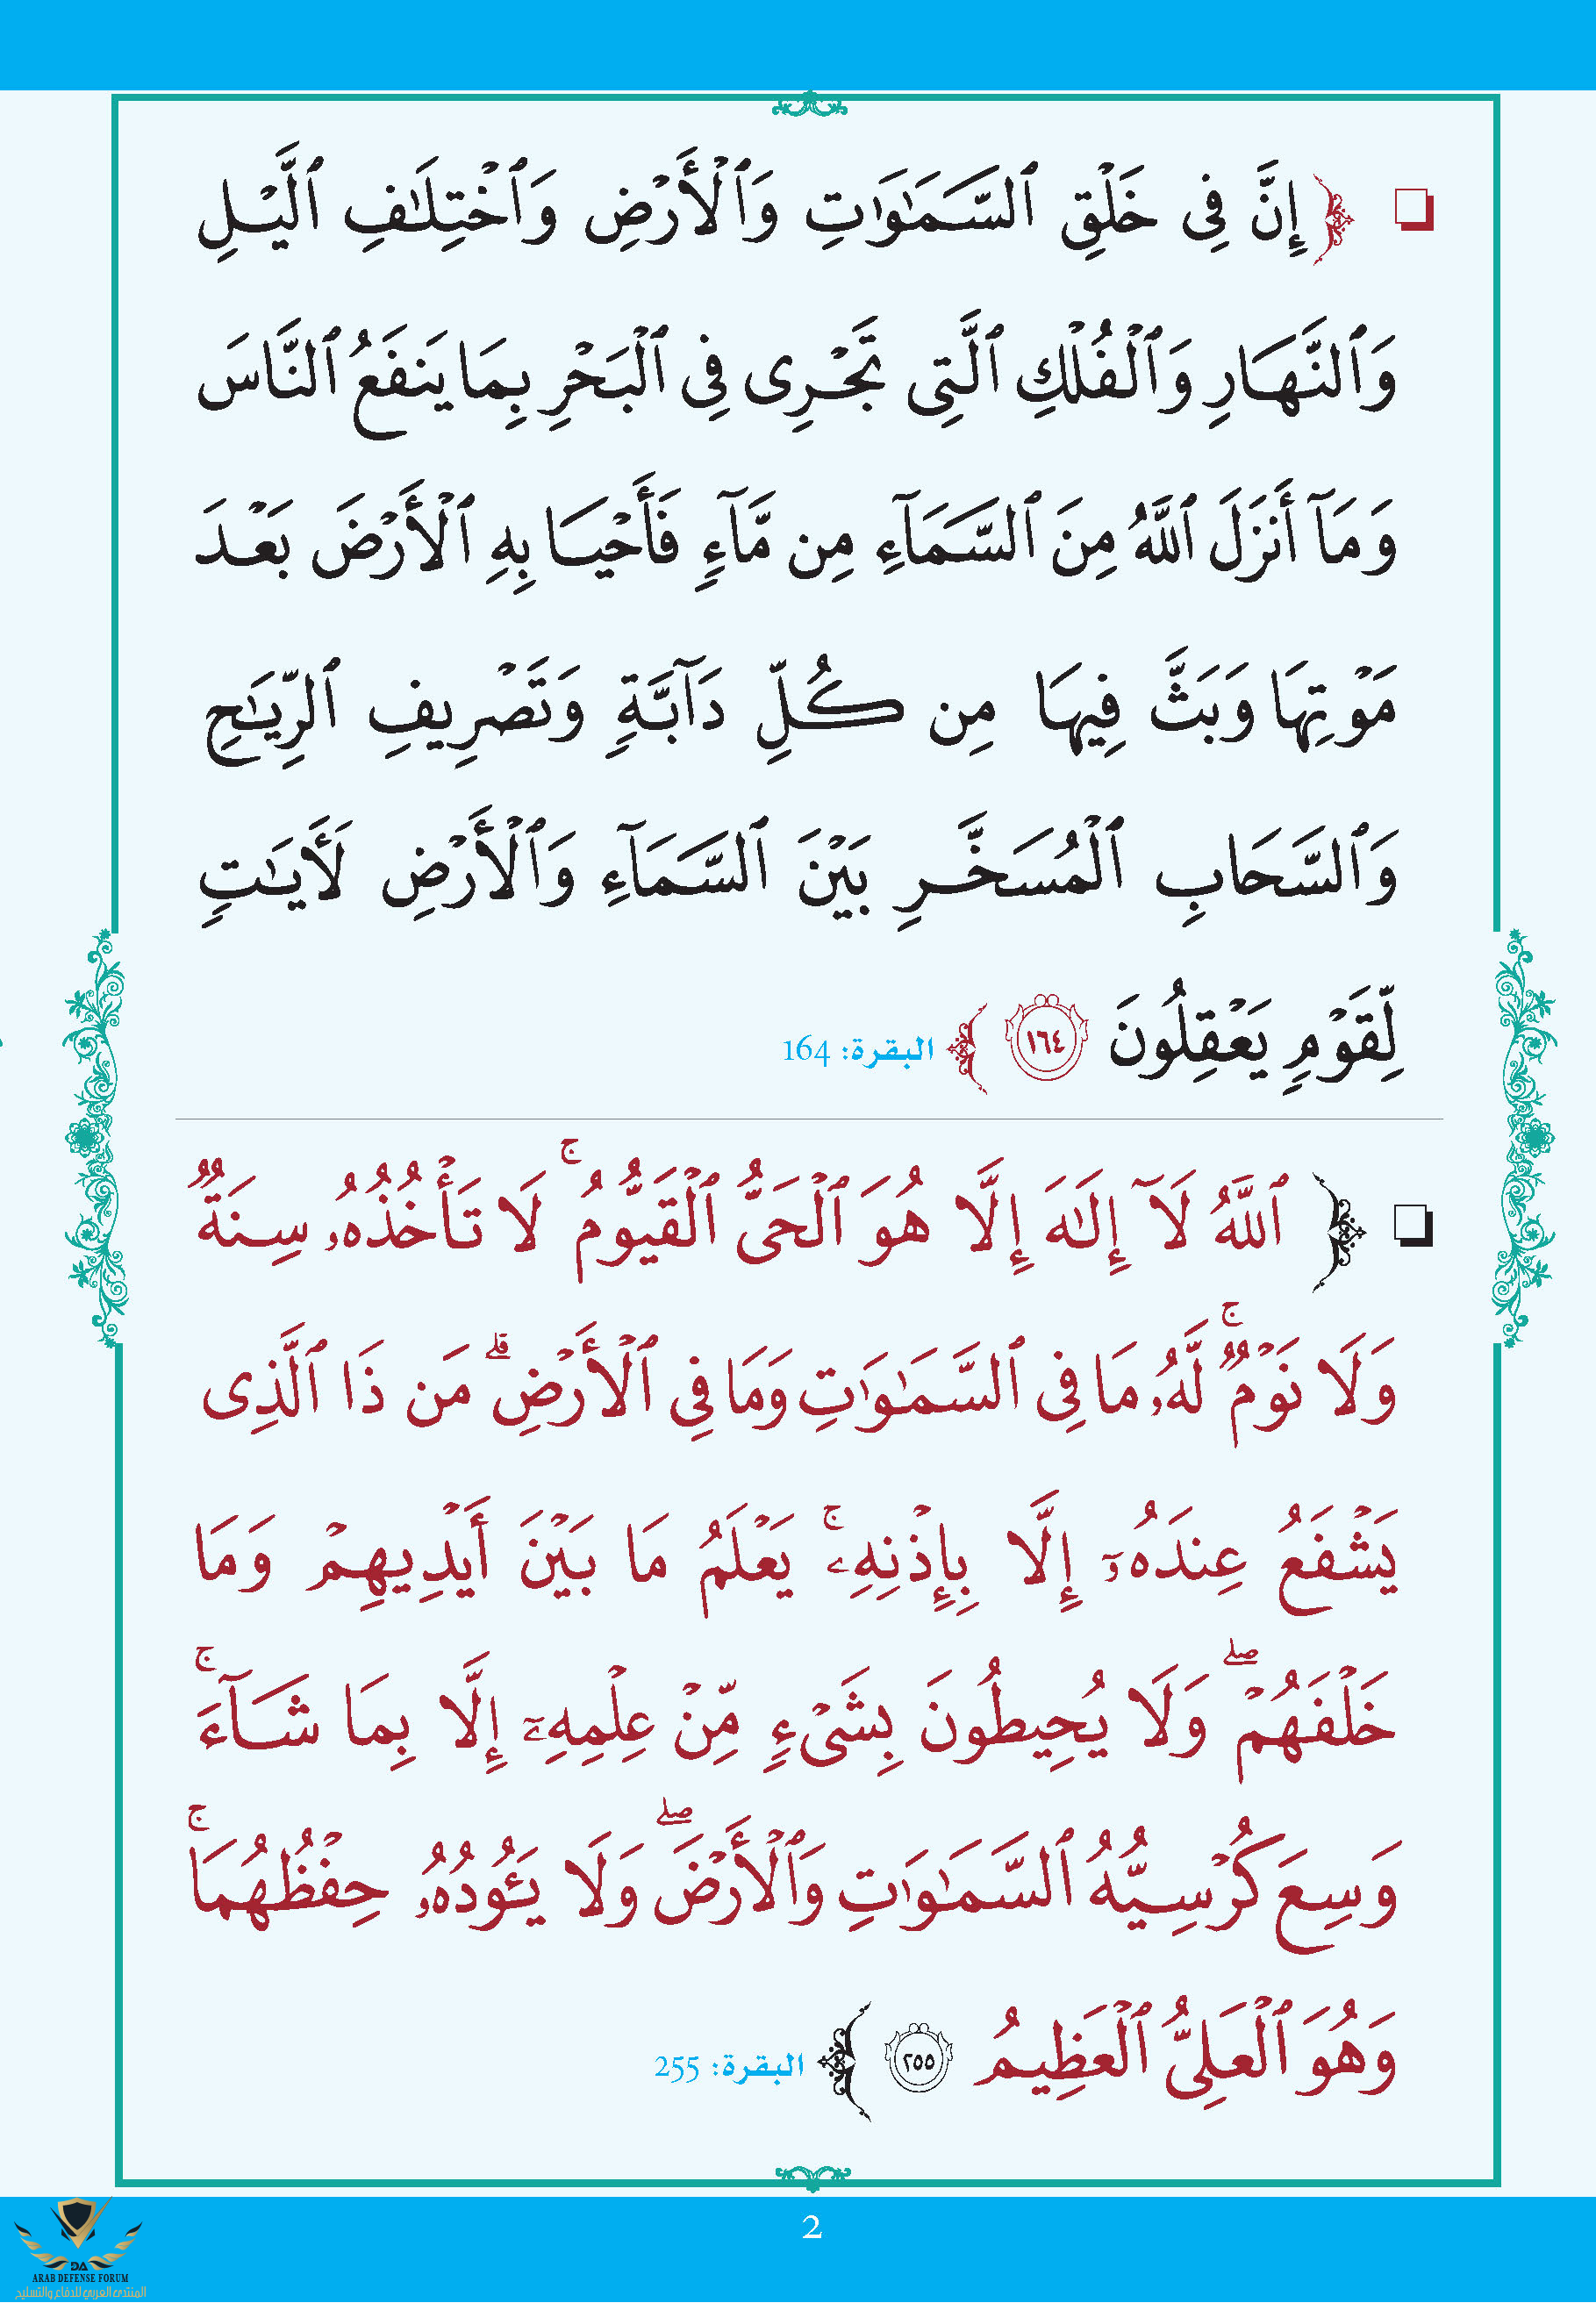 ❏ ﴿ إِنَّ فِى خَلْقِ ٱلسَّمَـٰوَٰتِ وَٱلْأَرْضِ وَٱخْتِلَـٰفِ ٱلَّيْلِ
وَٱلنَّهَارِ وَٱلْفُلْكِ ٱلَّتِى تَجْرِى فِى ٱلْبَحْرِ بِمَا يَنفَعُ ٱلنَّاسَ
وَمَآ أَنزَلَ ٱللَّهُ مِنَ ٱلسَّمَآءِ مِن مَّآءٍ فَأَحْيَا بِهِ ٱلْأَرْضَ بَعْدَ
مَوْتِهَا وَبَثَّ فِيهَا مِن كُلِّ دَآبَّةٍ وَتَصْرِيفِ ٱلرِّيَـٰحِ
وَٱلسَّحَابِ ٱلْمُسَخَّرِ بَيْنَ ٱلسَّمَآءِ وَٱلْأَرْضِ لَأَيَـٰتٍ
لِّقَوْمٍ يَعْقِلُونَ ١٦٤ ﴾ البقرة: 164
❏ ﴿ ٱللَّهُ لَآ إِلَـٰهَ إِلَّا هُوَ ٱلْحَىُّ ٱلْقَيُّومُ ۚ لَا تَأْخُذُهُۥ سِنَةٌ
وَلَا نَوْمٌ ۚ لَّهُۥ مَا فِى ٱلسَّمَـٰوَٰتِ وَمَا فِى ٱلْأَرْضِ ۗ مَن ذَا ٱلَّذِى
يَشْفَعُ عِندَهُۥٓ إِلَّا بِإِذْنِهِۦ ۚ يَعْلَمُ مَا بَيْنَ أَيْدِيهِمْ وَمَا
خَلْفَهُمْ ۖ وَلَا يُحِيطُونَ بِشَىْءٍ مِّنْ عِلْمِهِۦٓ إِلَّا بِمَا شَآءَ ۚ
وَسِعَ كُرْسِيُّهُ ٱلسَّمَـٰوَٰتِ وَٱلْأَرْضَ ۖ وَلَا يَـُٔودُهُۥ حِفْظُهُمَا ۚ
وَهُوَ ٱلْعَلِىُّ ٱلْعَظِيمُ ٢٥٥ ﴾ البقرة: 255
2
DA
ARAB DEFENSE FORUM
المنتدى العربي للدفاع والتسليح